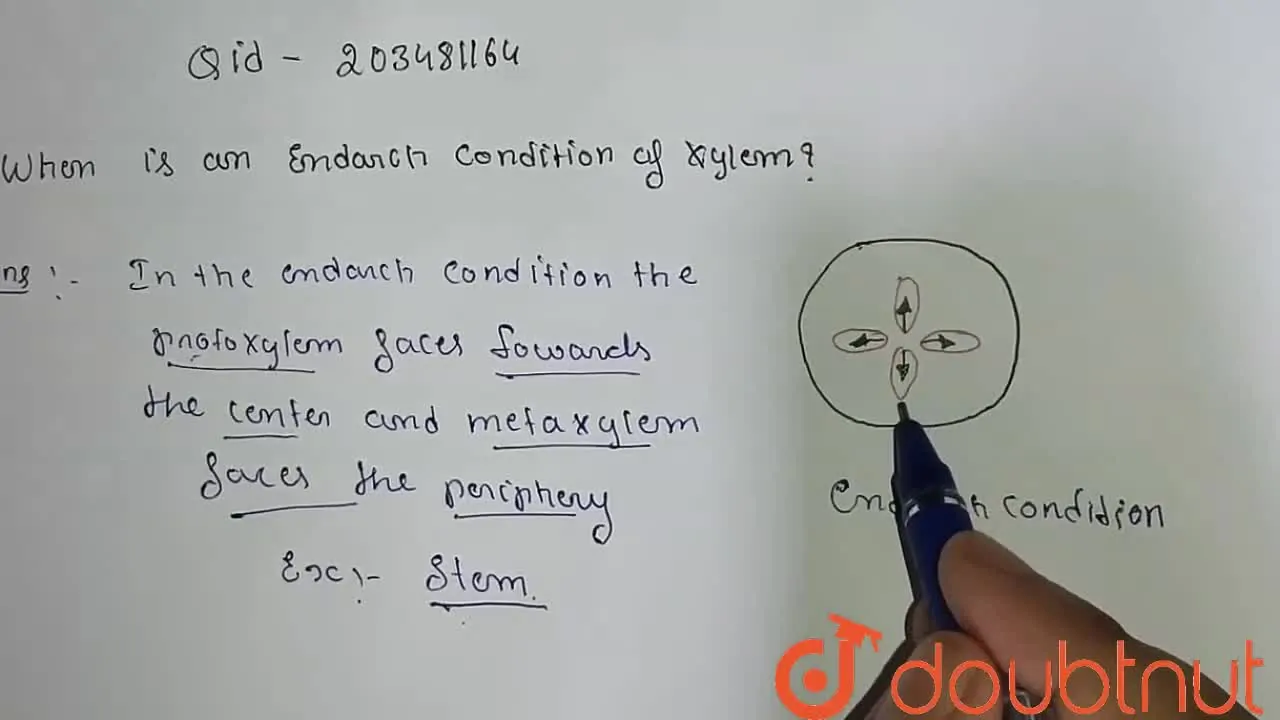 Qid - 203481164
When is an Endarch condition of xylem?
ns :- In the endarch condition the
protoxylem faces towards
the center and metaxylem
faces the periphery
Ex :- Stem.
condidion
doubtnut